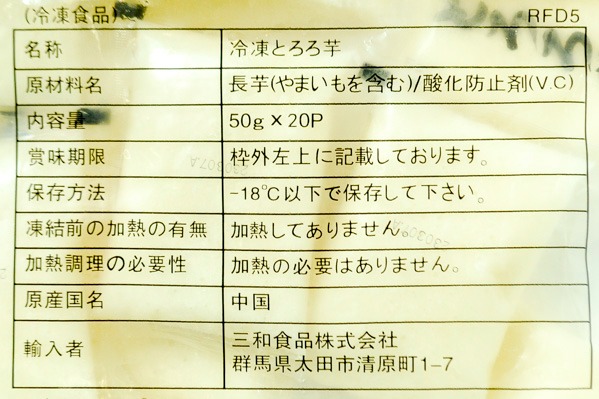 (冷凍食品)
RFD5
名称 冷凍とろろ芋
原材料名 長芋(やまいもを含む)/酸化防止剤(V.C)
内容量 50g×20P
賞味期限 枠外左上に記載しております。
保存方法 -18℃以下で保存して下さい。
凍結前の加熱の有無 加熱してありません。
加熱調理の必要性 加熱の必要はありません。
原産国名 中国
輸入者 三和食品株式会社
群馬県太田市清原町1-7